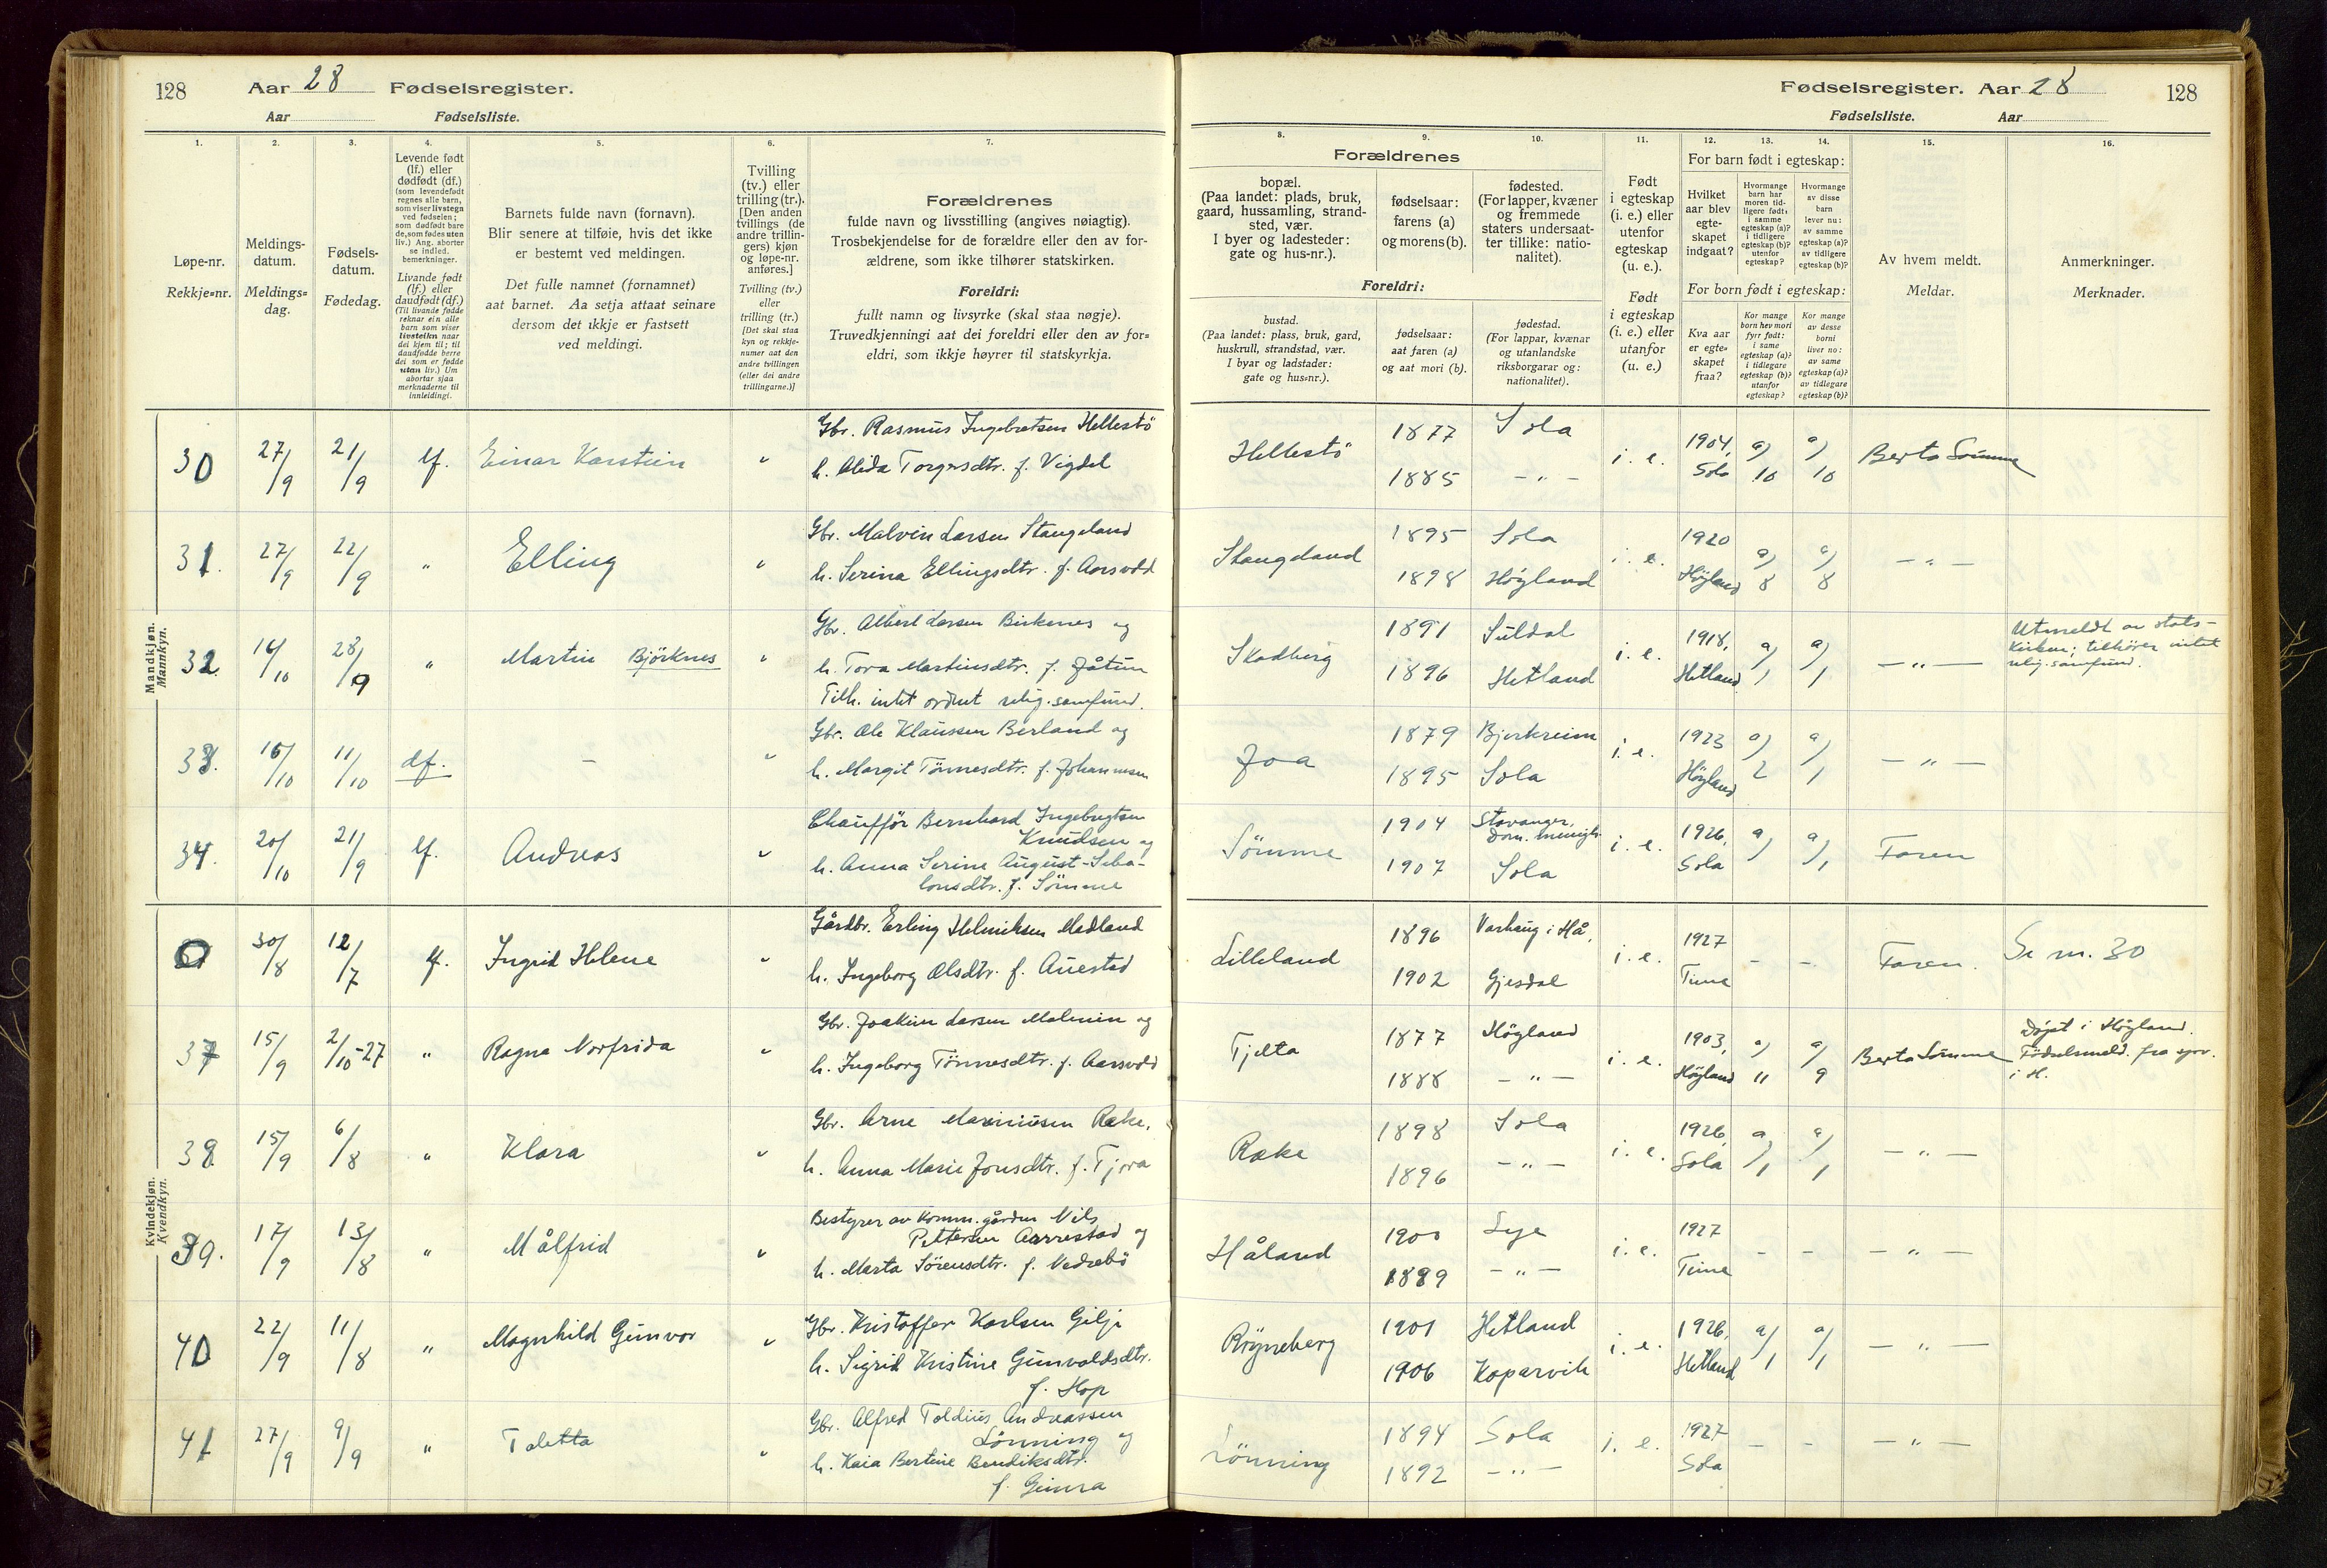 128 Aar 28 Fødselsregister.
Aar Fødselsliste.
1. 2. 3. 4. 5. 6. 7.
Løpe-nr.
Rekkje=nr.
Meldings-
datum.
Meldings=
dag.
Fødsels-
datum.
Fødedag.
Levende født
(lf.) eller
dødfødt (df.)
(som levendefødt
regnes alle barn,
som viser livstegn
ved fødselen;
som dødfødt bare
de, som fødes uten
liv.) Ang. aborter
se indled.
bemerkninger.
Livande født
(lf.) eller
daudfødt (df.)
(Til livande fødde
reknar ein alle
barn som viser
livsteikn naar
dei kjem til; til
daudfødde berre
dei som er fødde
utan liv.) Um
abortar sjaa
merknaderne til
innleidingi.
Barnets fulde navn (fornavn).
Blir senere at tilføie, hvis det ikke
er bestemt ved meldingen.
Det fulle namnet (fornamnet)
aat barnet. Aa setja attaat seinare
dersom det ikkje er fastsett
ved meldingi.
Tvilling
(tv.) eller
trilling (tr.).
[Den anden
tvillings (de
andre trillin-
gers) kjøn
og løpe-nr.
anføres.]
Tvilling (tv.)
eller
trilling (tr.)
[Det skal staa
kyn og rekkje-
numer aat den
andre tvillingen
(eller dei andre
trillingarne.)]
Forældrenes
fulde navn og livsstilling (angives nøiagtig).
Trosbekjendelse for de forældre eller den av for-
ældrene, som ikke tilhører statskirken.
Foreldri:
fullt namn og livsyrke (skal staa nøgje).
Truvedkjenningi aat dei foreldri eller den av for=
eldri, som ikkje høyrer til statskyrkja.
Mandkjøn.
Mannkyn.
30 27/9 21/9 lf. Einar Karstein " Gbr. Rasmus Ingebretsen Hellestö
h. Alida Torgersdtr. f. Vigdel
31. 27/9 22/9 " Elling " Gbr. Malvin Larsen Stangeland
h. Serina Ellingsdtr. f. Aarsvold
32. 16/10 28/9 " Martin Björknes " Gbr. Albert Larsen Birkenes og
h. Tora Martinsdtr. f. Jåtun
Tilh. intet ordnet relig. samfund.
33. 16/10 11/10 df. — " Gbr. Ole Klaussen Berland og
h. Margit Tönnesdtr. f. Johannesen
34. 20/10 21/9 lf. Andreas " Chauffør Bernhard Ingebregtsen
Knudsen og
h. Anna Serine August-
f. Sömme
Kvindekjøn.
Kvendkyn.
0 30/8 12/7 lf. Ingrid Helene " Gårdbr. Erling Helmiksen Madland
h. Ingeborg Olsdtr. f. Auestad
37 15/9 2/10-27 " Ragna Norfrida " Gbr. Joakim Larsen Malmin og
h. Ingeborg Tönnesdtr. f. Aarsvold
38. 15/9 6/8 " Klara " Gbr. Arne Mariniusen Røke,
h. Anna Marie Jonsdtr. f. Tjora
39. 17/9 13/8 " Målfrid " Bestyrer av komm. gården Nils
Pettersen Aarrestad og
h. Marta Sörensdtr. f. Nedrebö
40 22/9 11/8 " Magnhild Gunvor " Gbr. Kristoffer Karlsen Gilje
h. Sigrid Kristine Gunvaldsdtr.
f. Hop
41 27/9 9/9 " Taletta " Gbr. Alfred Toldius Andreassen
Lönning og
h. Kaia Bertine Bendiksdtr.
f. Gimra
Fødselsregister. Aar 28 128
Fødselsliste. Aar
8. 9. 10. 11. 12. 13. 14. 15. 16.
Forældrenes
bopæl.
(Paa landet: plads, bruk,
gaard, hussamling, strand-
sted, vær.
I byer og ladesteder:
gate og hus-nr.).
fødselsaar:
farens (a)
og morens (b).
fødested.
(For lapper, kvæner
og fremmede
staters undersaat-
ter tillike: natio-
nalitet).
Foreldri:
bustad.
(Paa landet: plass, bruk, gard,
huskrull, strandstad, vær.
I byar og ladstader:
gate og hus=nr.).
fødselsaar:
aat faren (a)
og aat mori (b).
fødestad.
(For lappar, kvænar
og utanlandske
riksborgarar og:
nationalitet).
Født
i egteskap
(i. e.) eller
utenfor
egteskap
(u. e.).
Født
i egteskap
(i. e.) eller
utanfor
(u. e.)
For barn født i egteskap:
Hvilket
aar blev
egte-
skapet
indgaat?
Hvormange
barn har
moren tid-
ligere født:
i samme
egteskap (a)?
i tidligere
egteskap (b)?
utenfor
egteskap?
Hvormange
av disse
barn
lever nu:
av samme
egteskap (a)?
av tidligere
egteskap (b)?
For born født i egteskap:
Kva aar
er egte=
skapet
fraa?
Kor mange
born hev mori
fyrr født:
i same
egteskap (a)?
i tidlegare
egteskap (b)?
utanfor
egteskap?
Kor mange
av desse
borni
liver no:
av same
egteskap (a)?
av tidlegare
egteskap (b)?
Av hvem meldt.
Meldar.
Anmerkninger.
Merknader.
Hellestö 1877 Sola i. e. 1904, a) a) Berta Sömme
1885 — " — Sola 10 10
Stangeland 1895 Sola i. e. 1920 a) a) — " —
1898 Högland Högland 8 8
Skadberg 1891 Suldal i. e. 1918, a) a) — " — Utmeldt av stats-
1896 Hetland Hetland 1 1 kirken; tilhörer intet
relig. samfund.
Joa 1879 Bjerkreim i. e. 1923 a) a) — " —
1895 Sola Högland 2 1
Sömme 1904 Stavanger, Dom. menigh. i. e. 1926, a) a) Faren
1907 Sola Sola 1
Lilleland 1896 Varhaug i Hå, i. e. 1927 - - Faren. Se nr. 30
1902 Gjesdal Time
Tjelta 1877 Högland i. e. 1903, a) a) Berta Sömme Döpt i Högland.
1888 — " — Högland 11 9 Födselsmeld. fra spr.
i H.
Røke 1898 Sola i. e. 1926, a) a) — " —
1896 — " — Sola 1 1
Håland 1900 Lye i. e. 1927 - - — " —
1889 — " — Time
Röyneberg 1901 Hetland i. e. 1926, a) a) — " —
1906 Kopervik Hetland 1 1
Lönning 1894 Sola i. e. 1927 - - — " —
1892 — " — Sola